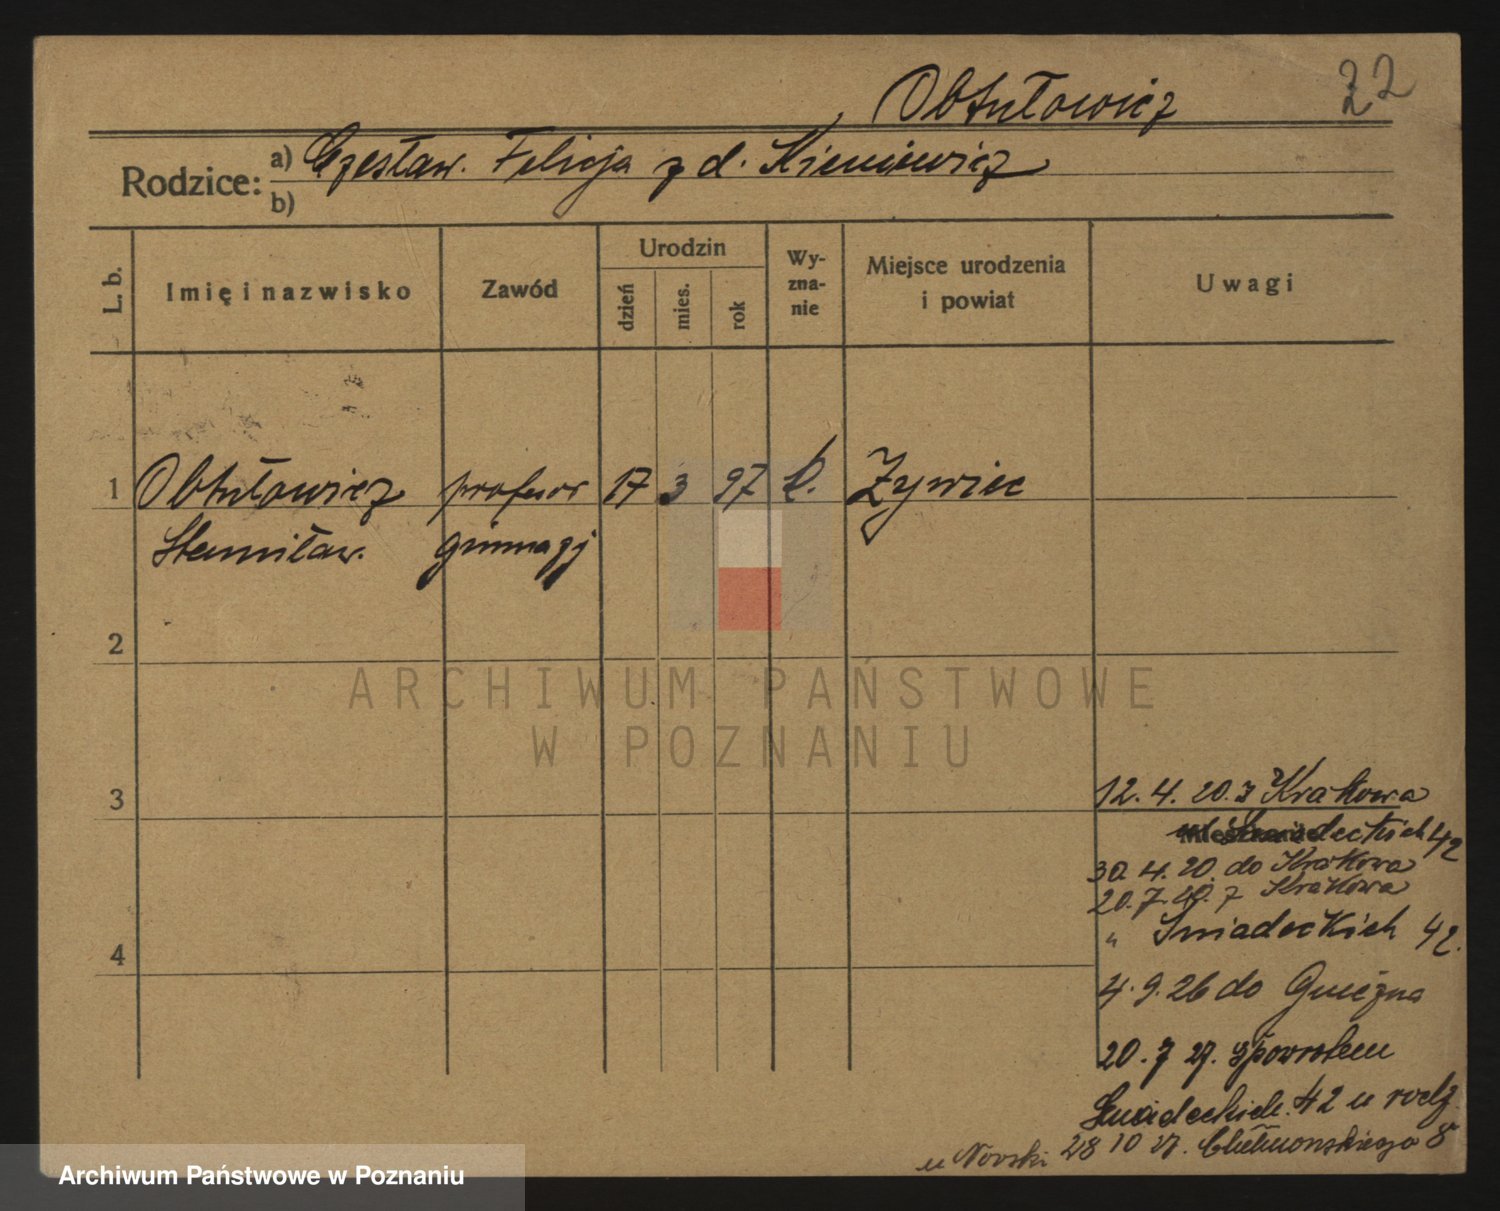 Obtułowicz 22
Rodzice: a) Czesław. Felicja z d. Kieniewicz
b)
L. b. Imię i nazwisko Zawód Urodzin dzień mies. rok Wyznanie Miejsce urodzenia i powiat Uwagi
1 Obtułowicz profesor 17 3 97 k. Żywiec
Stanisław. gimnazj
2
ARCHIWUM PAŃSTWOWE
W POZNANIU
3 12. 4. 20. z Krakowa
Mieszkanie Śniadeckich 42
30. 4. 20. do Krakowa
20. 7. 20. z Krakowa
" Śniadeckich 42.
4
4. 9. 26 do Gniezna
20. 7 27. spowrotem
Śniadeckich. 42 u rodz.
u 28 10 27. Chełmonskiego 8
Archiwum Państwowe w Poznaniu